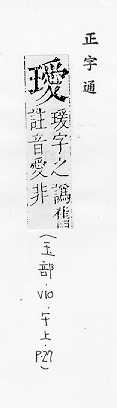 正字通
璦
瑗字之譌舊
註音愛非
(玉部.V10.午上.P.27)